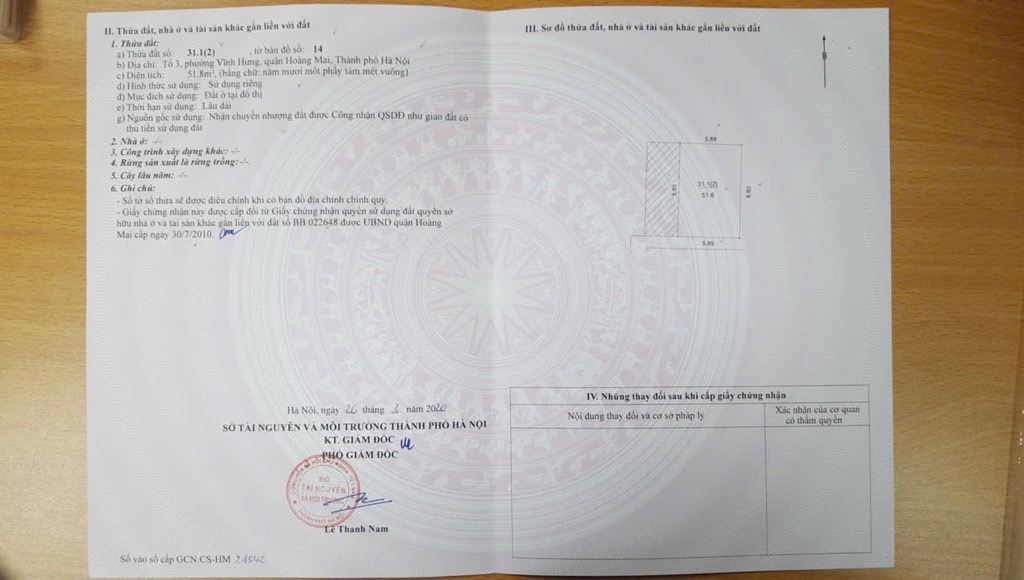 II. Thửa đất, nhà ở và tài sản khác gắn liền với đất
1. Thửa đất:
a) Thửa đất số: 31.1(2) , tờ bản đồ số: 14
b) Địa chỉ: Tổ 3, phường Vĩnh Hưng, quận Hoàng Mai, Thành phố Hà Nội
c) Diện tích: 51,8m², (bằng chữ: năm mươi mốt phẩy tám mét vuông)
d) Hình thức sử dụng: Sử dụng riêng
đ) Mục đích sử dụng: Đất ở tại đô thị
e) Thời hạn sử dụng: Lâu dài
g) Nguồn gốc sử dụng: Nhận chuyển nhượng đất được Công nhận QSDĐ như giao đất có
thu tiền sử dụng đất
2. Nhà ở: -/-
3. Công trình xây dựng khác: -/-
4. Rừng sản xuất là rừng trồng: -/-
5. Cây lâu năm: -/-
6. Ghi chú:
- Số tờ số thửa sẽ được điều chỉnh khi có bản đồ địa chính chính quy.
- Giấy chứng nhận này được cấp đổi từ Giấy chứng nhận quyền sử dụng đất quyền sở
hữu nhà ở và tài sản khác gắn liền với đất số BB 022648 được UBND quận Hoàng
Mai cấp ngày 30/7/2010.
Hà Nội, ngày 26 tháng năm 2020
SỞ TÀI NGUYÊN VÀ MÔI TRƯỜNG THÀNH PHỐ HÀ NỘI
KT. GIÁM ĐỐC
PHÓ GIÁM ĐỐC
SỞ
TÀI NGUYÊN
VÀ MÔI TRƯỜNG
THÀNH PHỐ HÀ NỘI
Lê Thanh Nam
Số vào sổ cấp GCN:CS-HM
III. Sơ đồ thửa đất, nhà ở và tài sản khác gắn liền với đất
B
5.89
31.1(2)
51.8
8.80
8.80
5.89
IV. Những thay đổi sau khi cấp giấy chứng nhận
Nội dung thay đổi và cơ sở pháp lý
Xác nhận của cơ quan
có thẩm quyền